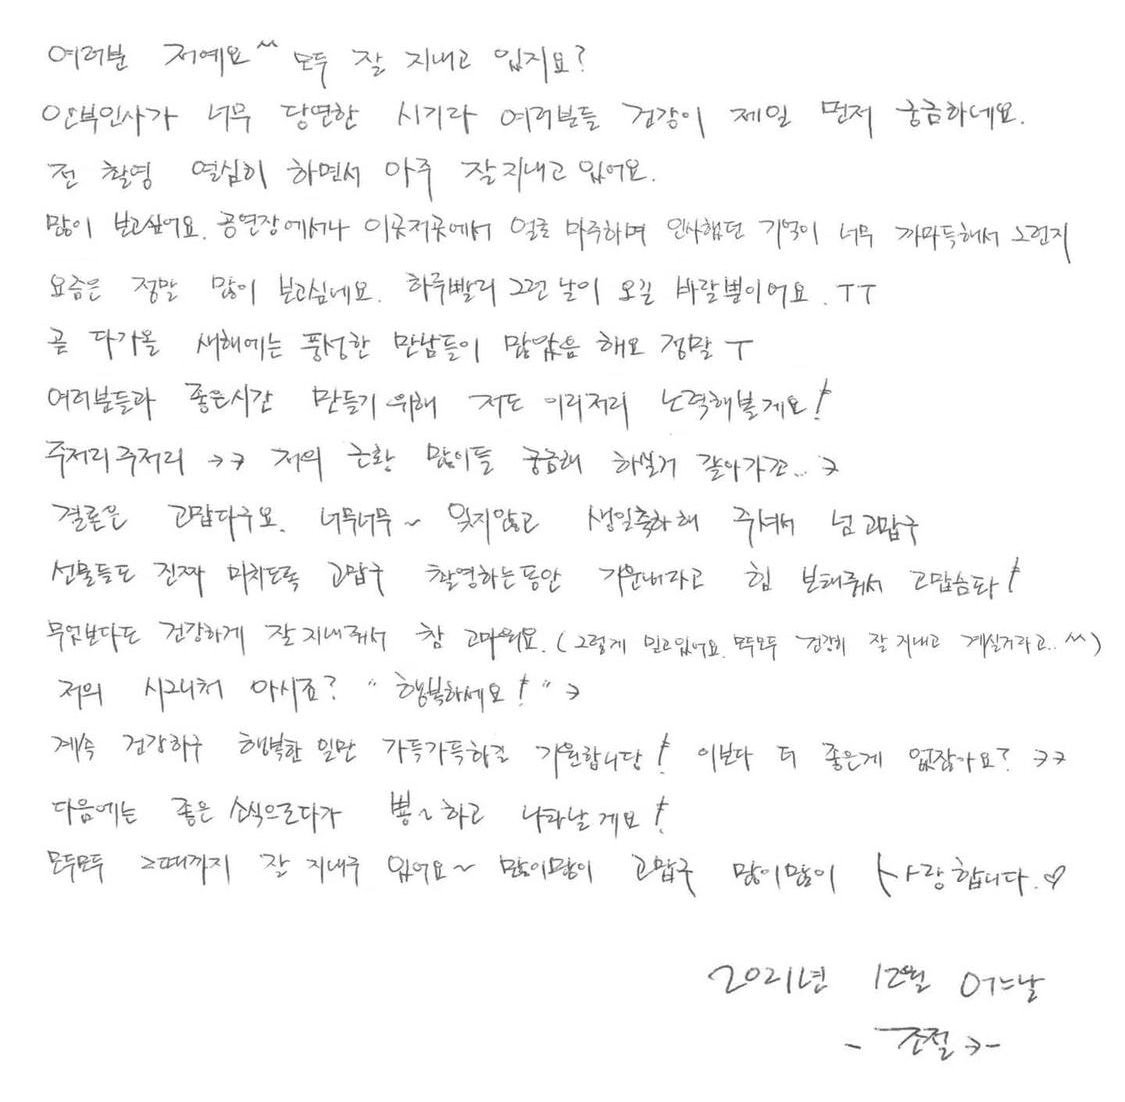 여러분 저예요^^ 모두 잘 지내고 있지요?
안부인사가 너무 당연한 시기라 여러분들 건강이 제일 먼저 궁금하네요.
전 촬영 열심히 하면서 아주 잘지내고 있어요.
많이 보고싶어요. 공연장에서나 이곳저곳에서 얼굴 마주하며 인사했던 기억이 너무 까마득해서 그런지
요즘은 정말 많이 보고싶네요. 하루빨리 그런 날이 오길 바랄뿐이어요. ㅜㅜ
곧 다가올 새해에는 풍성한 만남들이 많았음 해요 정말 ㅜ
여러분들과 좋은시간 만들기 위해 저도 이리저리 노력해볼게요!
주저리주저리 ㅋㅋ 저의 근황 많이들 궁금해 하실거 같아가꼬.. ㅋ
결론은 고맙다구요. 너무너무~ 잊지않고 생일축하해 주셔서 넘고맙구
선물들도 진짜 미치도록 고맙구 촬영하는동안 기운내라고 힘 보태줘서 고맙슴돠!
무엇보다도 건강하게 잘지내줘서 참 고마워요. (그렇게 믿고있어요. 모두모두 건강히 잘 지내고 계실거라고..^^)
저의 시그니처 아시죠? "행복하세요!" ㅋ
계속 건강하구 행복한 일만 가득가득하길 기원합니당! 이보다 더 좋은게 없잖아요? ㅋㅋ
다음에는 좋은 소식으로다가 뿅~하고 나타날게요!
모두모두 그때까지 잘 지내주 있어요~ 많이많이 고맙구 많이많이 사랑합니다.♡
2021년 12월 어느날
- 조절 ㅋ-